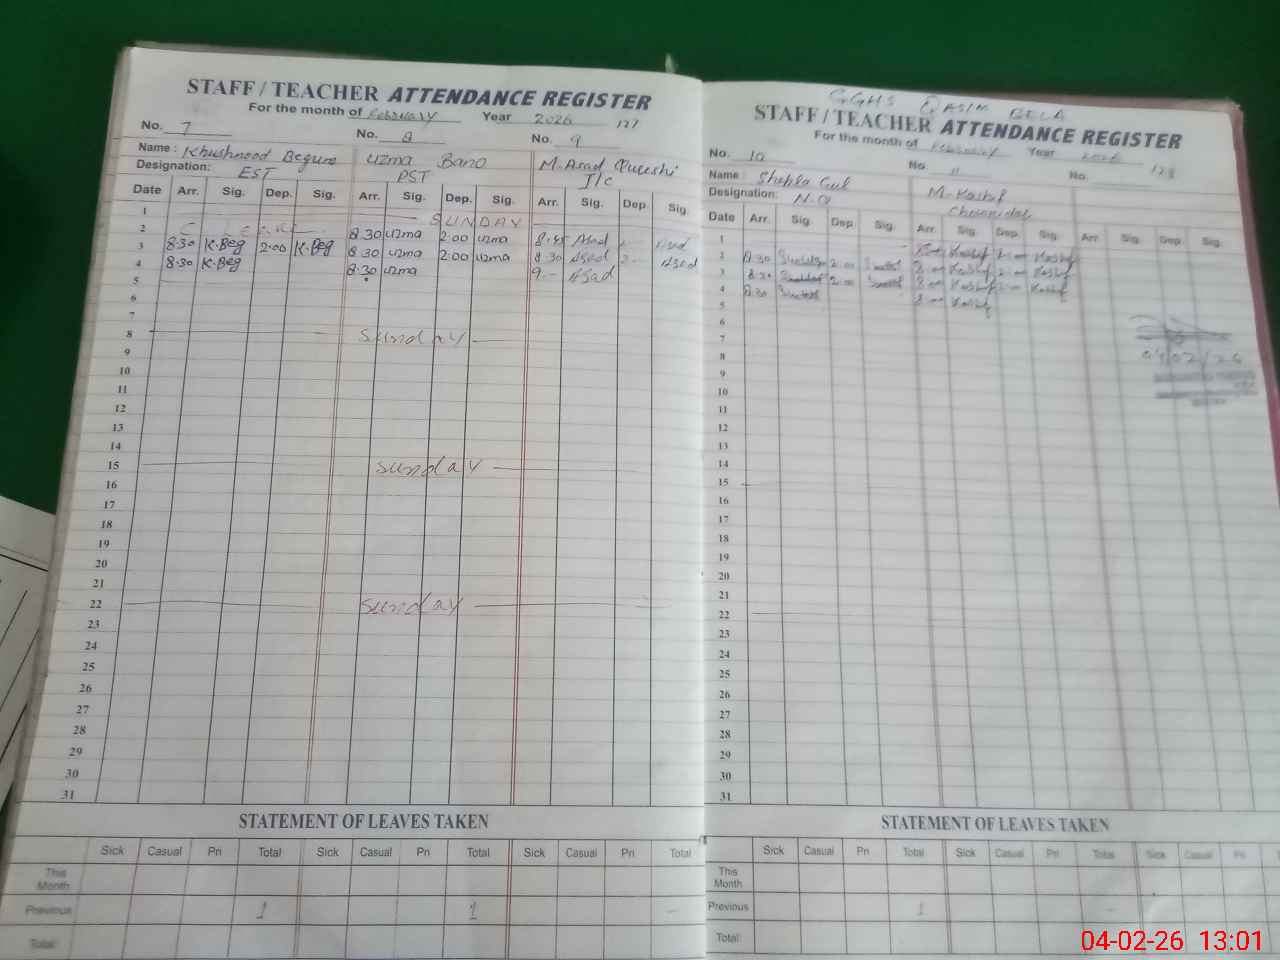 STAFF / TEACHER ATTENDANCE REGISTER
For the month of February Year 2026 127
No. 7 No. 8 No. 9
Name : Khushnood Begum Uzma Bano M. Asad Qureshi
Designation: EST PST I/c
Date Arr. Sig. Dep. Sig. Arr. Sig. Dep. Sig. Arr. Sig. Dep. Sig.
1 SUNDAY
2 C LEAVE 8.30 uzma 2:00 uzma 8.45 Asad Asad
3 8.30 K.Beg 2.00 K.Beg 8.30 uzma 2:00 uzma 8.30 Asad 2 - Asad
4 8.30 K.Beg 8.30 uzma 9 - Asad
5
6
7
8 Sunday
9
10
11
12
13
14
15 Sunday
16
17
18
19
20
21
22 Sunday
23
24
25
26
27
28
29
30
31
STATEMENT OF LEAVES TAKEN
Sick Casual Pri Total Sick Casual Pri Total Sick Casual Pri Total
This Month
Previous 1 1 -
Total:
GGHS QASIM BELA
STAFF / TEACHER ATTENDANCE REGISTER
For the month of February Year 2026 128
No. 10 No. 11 No.
Name : Shehla Gul M. Kashif
Designation: N.Q Chowkidar
Date Arr. Sig. Dep. Sig. Arr. Sig. Dep. Sig. Arr. Sig. Dep. Sig.
1 Kashif Kashif
2 8.30 2:00 8:00 Kashif 2:00 Kashif
3 8.30 2:00 8:00 Kashif 2:00 Kashif
4 8.30 8:00 Kashif
5
6
7
8 04/02/26
9
10
11
12
13
14
15
16
17
18
19
20
21
22
23
24
25
26
27
28
29
30
31
STATEMENT OF LEAVES TAKEN
Sick Casual Pri Total Sick Casual Pri Total Sick Casual Pri
This Month
Previous 1 -
Total:
04-02-26 13:01